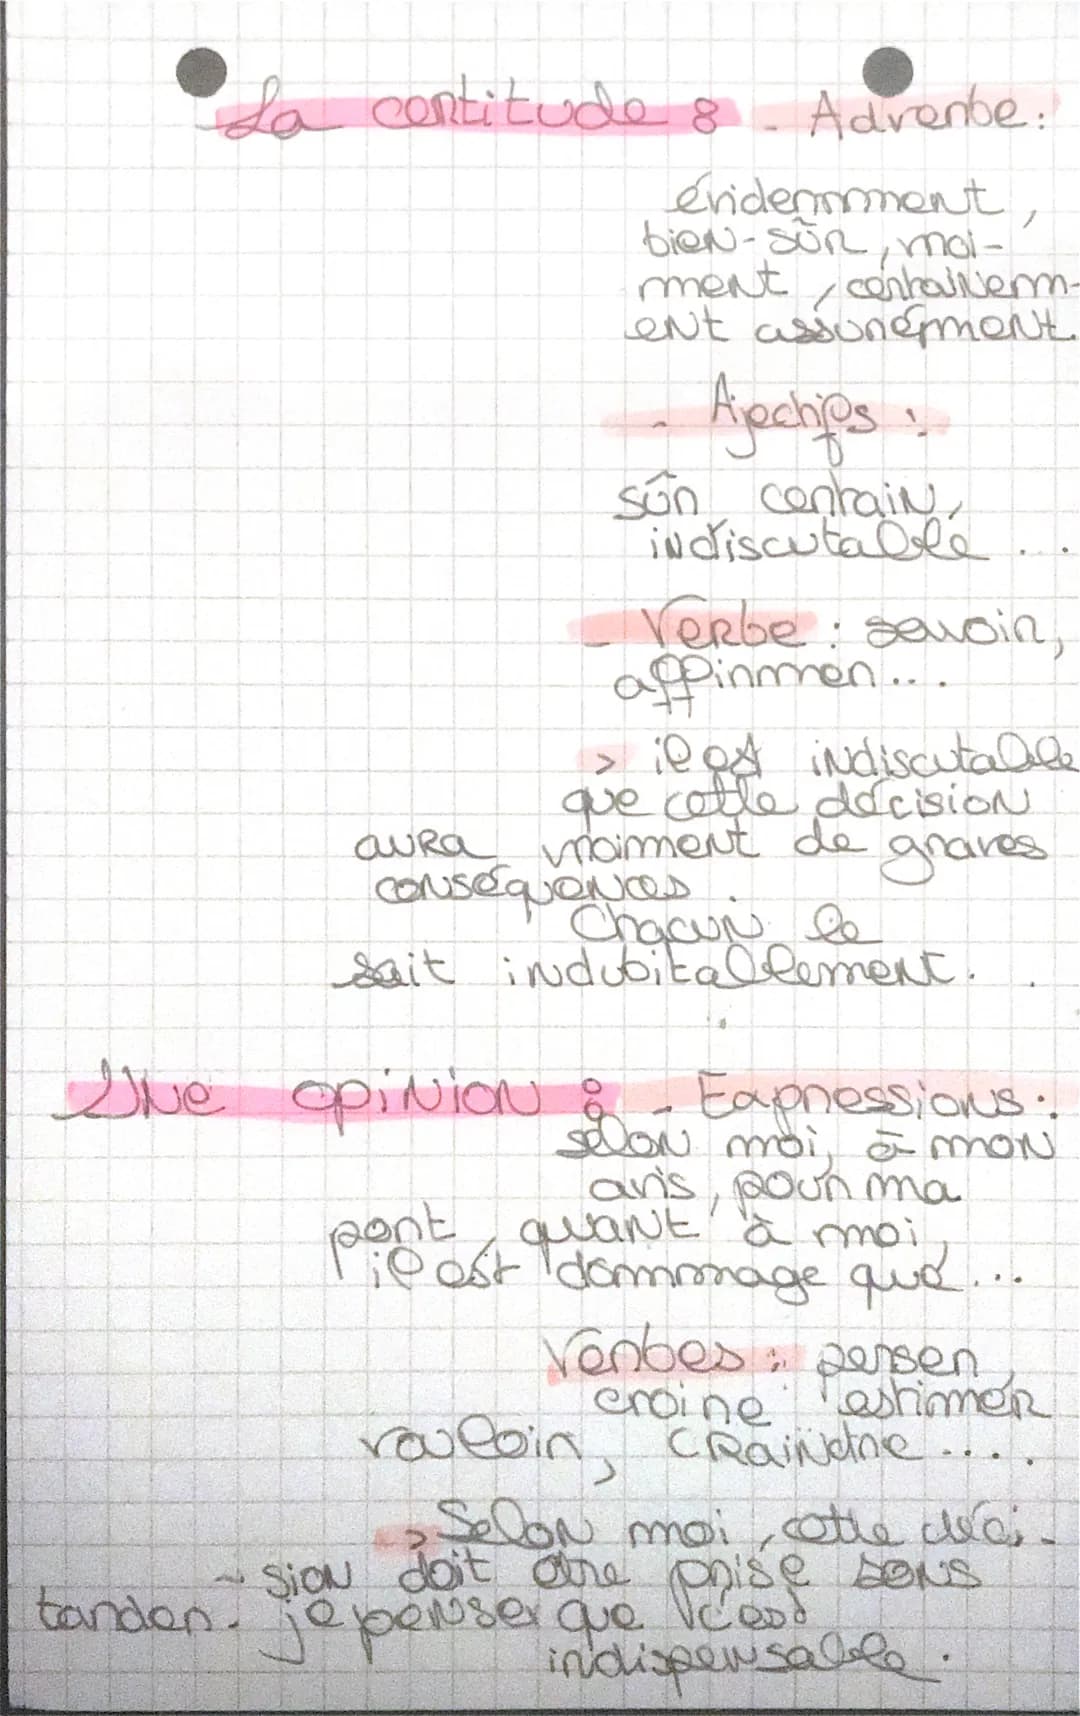 La certitude : - Adverbe :
évidemmment,
bien-sûr, vrai-
ment, certainem-
ent assurémment.
- Ajectifs :
sûr certain,
indiscutable ...
- Verbe : savoir,
affirmmer...
> il est indiscutable
que cette décision
aura vraiment de graves
conséquences.
Chacun le
sait indubitablement.
Une opinion : - Expressions :
selon moi, à mon
avis, pour ma
part, quant à moi,
il est dommmage que...
Verbes : penser
croire estimer
vouloir, craindre ....
> Selon moi, cette déci-
sion doit être prise sans
tarder. je penser que c'est
indispensable.